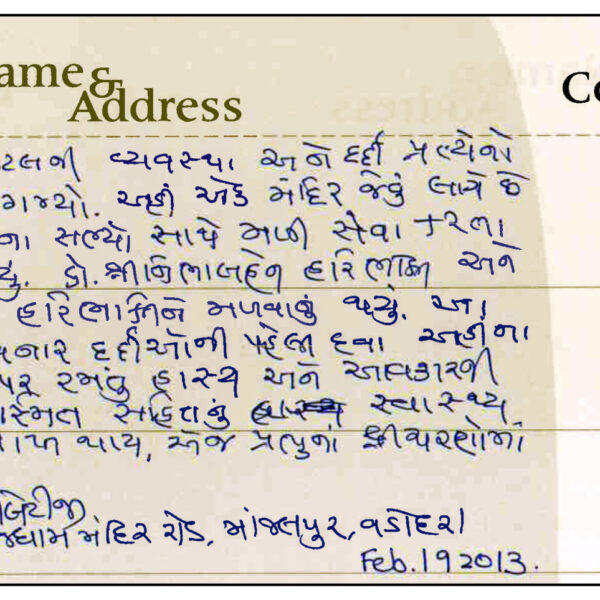 ame &
Address
Co
ટલની વ્યવસ્થા અને દર્દી પ્રત્યેનો
ગમ્યો. અહીં એક મંદિર જેવું લાગે છે
ના સભ્યો સાથે મળી સેવા કરતા
યું. ડો. શ્રી બહેન હરિભક્તિ અને
હરિભક્તિને મળવાનું થયું. આ
નાર દર્દીઓની પહેલી દવા અહીંના
પર રમતું હાસ્ય અને આવકારની
સ્મિત સહિતનું હાસ્ય સ્વાસ્થ્ય
થાય, એજ પ્રભુનાં શ્રીચરણોમાં
મંદિર રોડ, માંજલપુર, વડોદરા
Feb. 19 2013.